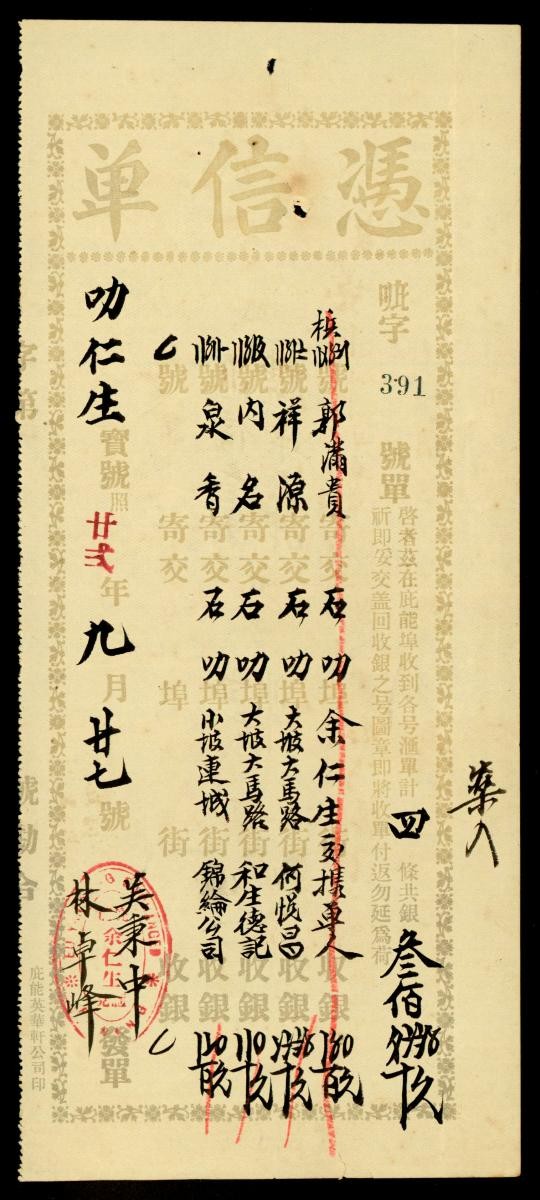 憑信單
吡字
391
號單
啓者茲在庇能埠收到各号滙單計
四
條共銀
叁佰
祈即妥交盖回收銀之号圖章即將收單付返勿延爲荷
號郭滿貴寄交石叻埠余仁生交攜單人收銀
號祥源寄交石叻埠大坡大馬路街何悅昌收銀
號內名寄交石叻埠大坡大馬路街和生德記收銀
號泉香寄交石叻埠小坡連城街錦綸公司收銀
號寄交埠街收銀
叻仁生寶號照
年九月廿七號
發單
余仁生
吳秉中
林卓峰
庇能英華軒公司印
字第
號勘合